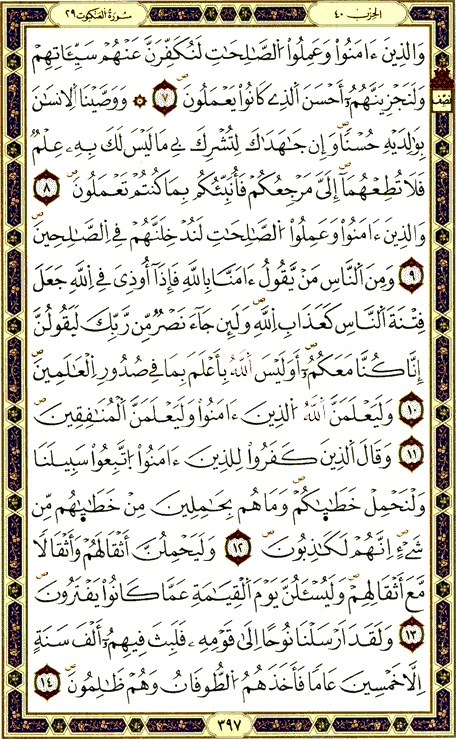 سورة العنكبوت ٢٩ الحزب ٤٠
وَالَّذِينَ ءَامَنُواْ وَعَمِلُواْ الصَّـٰلِحَـٰتِ لَنُكَفِّرَنَّ عَنْهُمْ سَيِّـَٔاتِهِمْ
وَلَنَجْزِيَنَّهُمُۥٓ أَحْسَنَ الَّذِے كَانُواْ يَعْمَلُونَ ٧ ۞ وَوَصَّيْنَا الْإِنسَـٰنَ
بِوَٰلِدَيْهِ حُسْنًا وَإِن جَـٰهَدَاكَ لِتُشْرِكَ بِے مَا لَيْسَ لَكَ بِهِۦ عِلْمٌ
فَلَا تُطِعْهُمَآ إِلَيَّ مَرْجِعُكُمْ فَأُنَبِّئُكُم بِمَا كُنتُمْ تَعْمَلُونَ ٨
وَالَّذِينَ ءَامَنُواْ وَعَمِلُواْ الصَّـٰلِحَـٰتِ لَنُدْخِلَنَّهُمْ فِے الصَّـٰلِحِينَ
٩ وَمِنَ النَّاسِ مَنْ يَّقُولُ ءَامَنَّا بِاللَّهِ فَإِذَآ أُوذِيَ فِے اللَّهِ جَعَلَ
فِتْنَةَ النَّاسِ كَعَذَابِ اللَّهِ وَلَئِن جَآءَ نَصْرٌ مِّن رَّبِّكَ لَيَقُولُنَّ
إِنَّا كُنَّا مَعَكُمُۥٓ أَوَلَيْسَ اللَّهُ بِأَعْلَمَ بِمَا فِے صُدُورِ الْعَـٰلَمِينَ
١٠ وَلَيَعْلَمَنَّ اللَّهُ الَّذِينَ ءَامَنُواْ وَلَيَعْلَمَنَّ الْمُنَـٰفِقِينَ
١١ وَقَالَ الَّذِينَ كَفَرُواْ لِلَّذِينَ ءَامَنُواْ اتَّبِعُواْ سَبِيلَنَا
وَلْنَحْمِلْ خَطَـٰيَـٰكُمْ وَمَا هُم بِحَـٰمِلِينَ مِنْ خَطَـٰيَـٰهُم مِّن
شَےْءٍ إِنَّهُمْ لَكَـٰذِبُونَ ١٢ وَلَيَحْمِلُنَّ أَثْقَالَهُمْ وَأَثْقَالًا
مَّعَ أَثْقَالِهِمْ وَلَيُسْـَٔلُنَّ يَوْمَ الْقِيَـٰمَةِ عَمَّا كَانُواْ يَفْتَرُونَ
١٣ وَلَقَدْ أَرْسَلْنَا نُوحًا إِلَىٰ قَوْمِهِۦ فَلَبِثَ فِيهِمُۥٓ أَلْفَ سَنَةٍ
إِلَّا خَمْسِينَ عَامًا فَأَخَذَهُمُ الطُّوفَانُ وَهُمْ ظَـٰلِمُونَ ١٤
٣٩٧